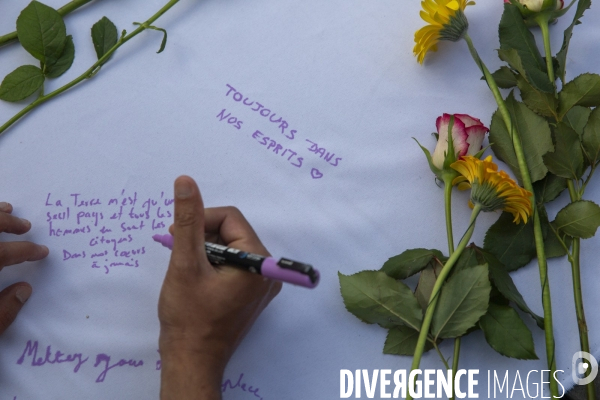 TOUJOURS DANS
NOS ESPRITS ♡
La Terre n'est qu'un
seul pays et tous les
hommes en sont les
citoyens
Dans nos cœurs
à jamais
Mettez
place
DIVERGENCE IMAGES